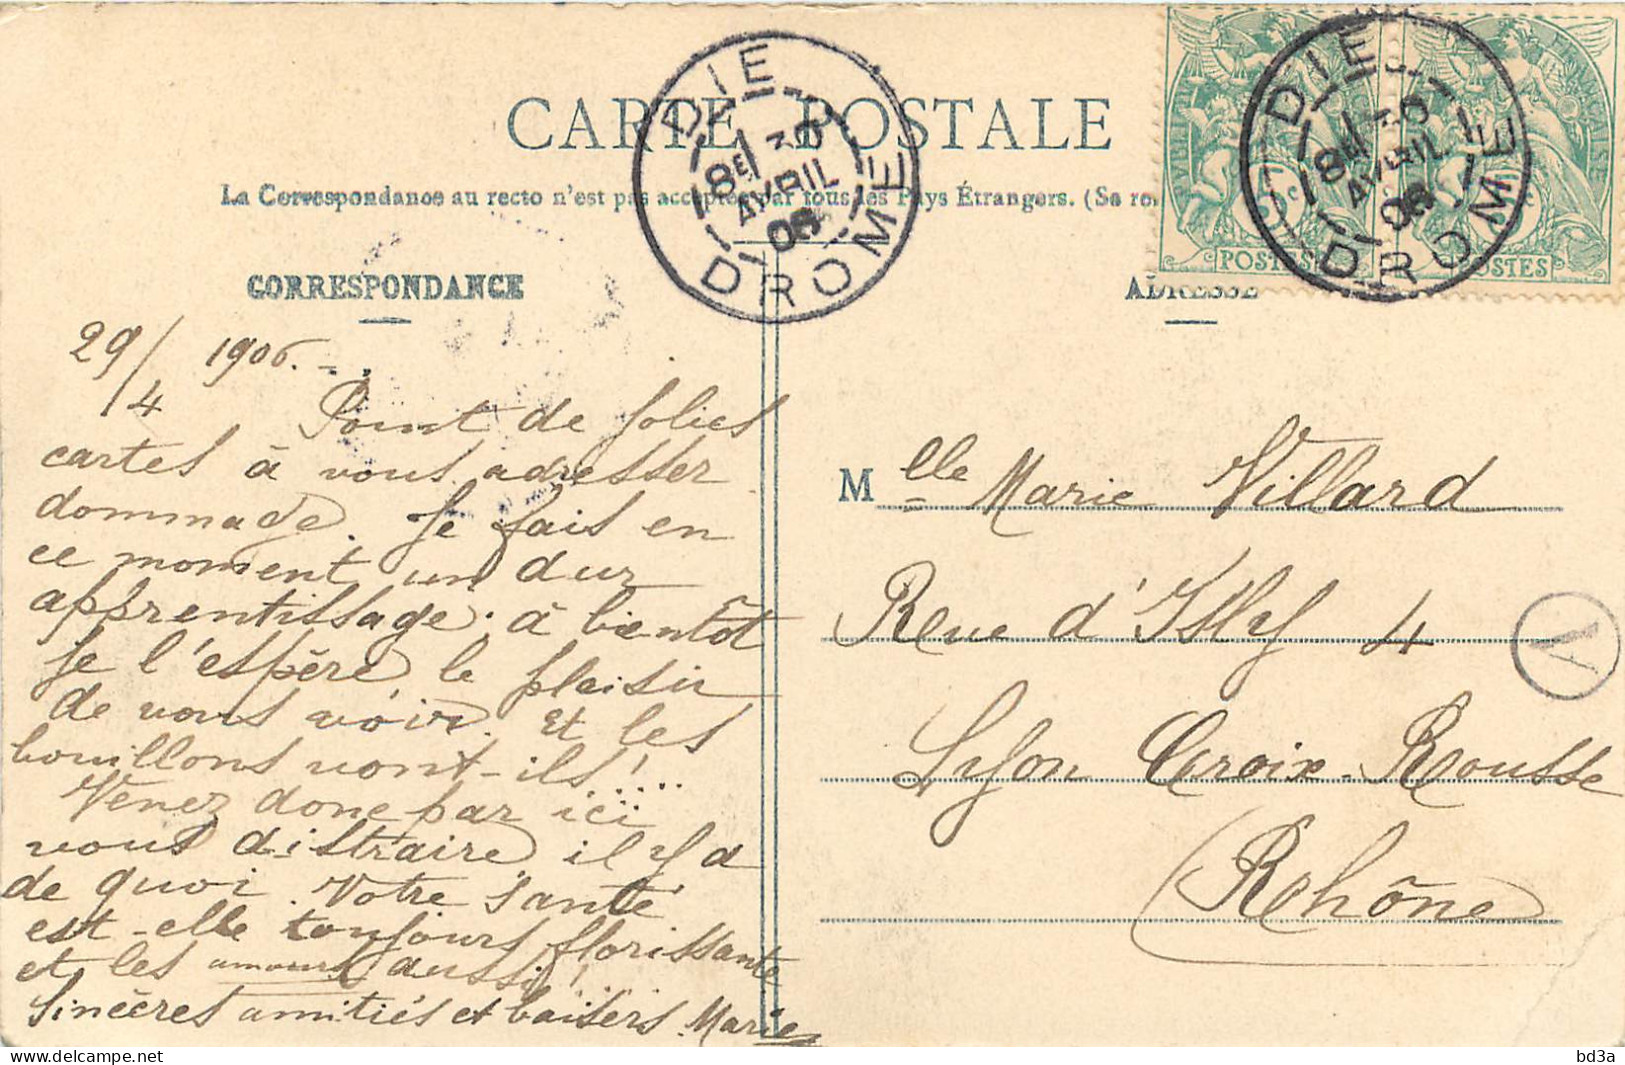 CARTE POSTALE
La Correspondance au recto n'est pas acceptée par tous les Pays Étrangers. (Se
CORRESPONDANCE
29/4 1906.
Point de jolies
cartes à vous adresser
dommage. Je fais en
ce moment un dur
apprentissage. à bientôt
je l'espère le plaisir
de vous voir. Et les
bouillons vont-ils!....
Venez donc par ici
vous distraire il y a
de quoi. Votre santé
est-elle toujours florissante
et les amours aussi!....
Sincères amitiés et baisers. Marie
DIE
8E 30
AVRIL
06
DROME
DIE
8E 30
AVRIL
06
DROME
POSTES
POSTES
ADRESSE
Melle Marie Villard
Rue d'Isly 4
Lyon Croix-Rousse
(Rhône
A
delcampe.net
bd3a